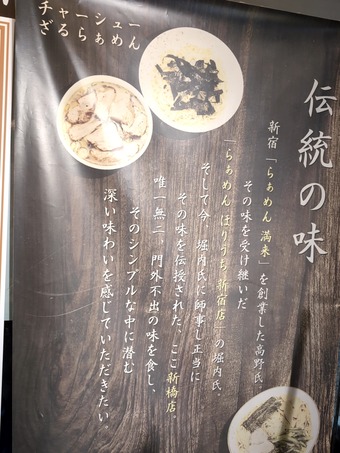 伝統の味
新宿「らぁめん 満来」を創業した高野氏、
その味を受け継いだ
「らぁめん ほりうち 新宿店」の堀内氏、
そして今、堀内氏に師事し正当に
その味を伝授された、ここ新橋店。
唯一無二、門外不出の味を食し、
そのシンプルな中に潜む
深い味わいを感じていただきたい。
チャーシュー
ざるらぁめん